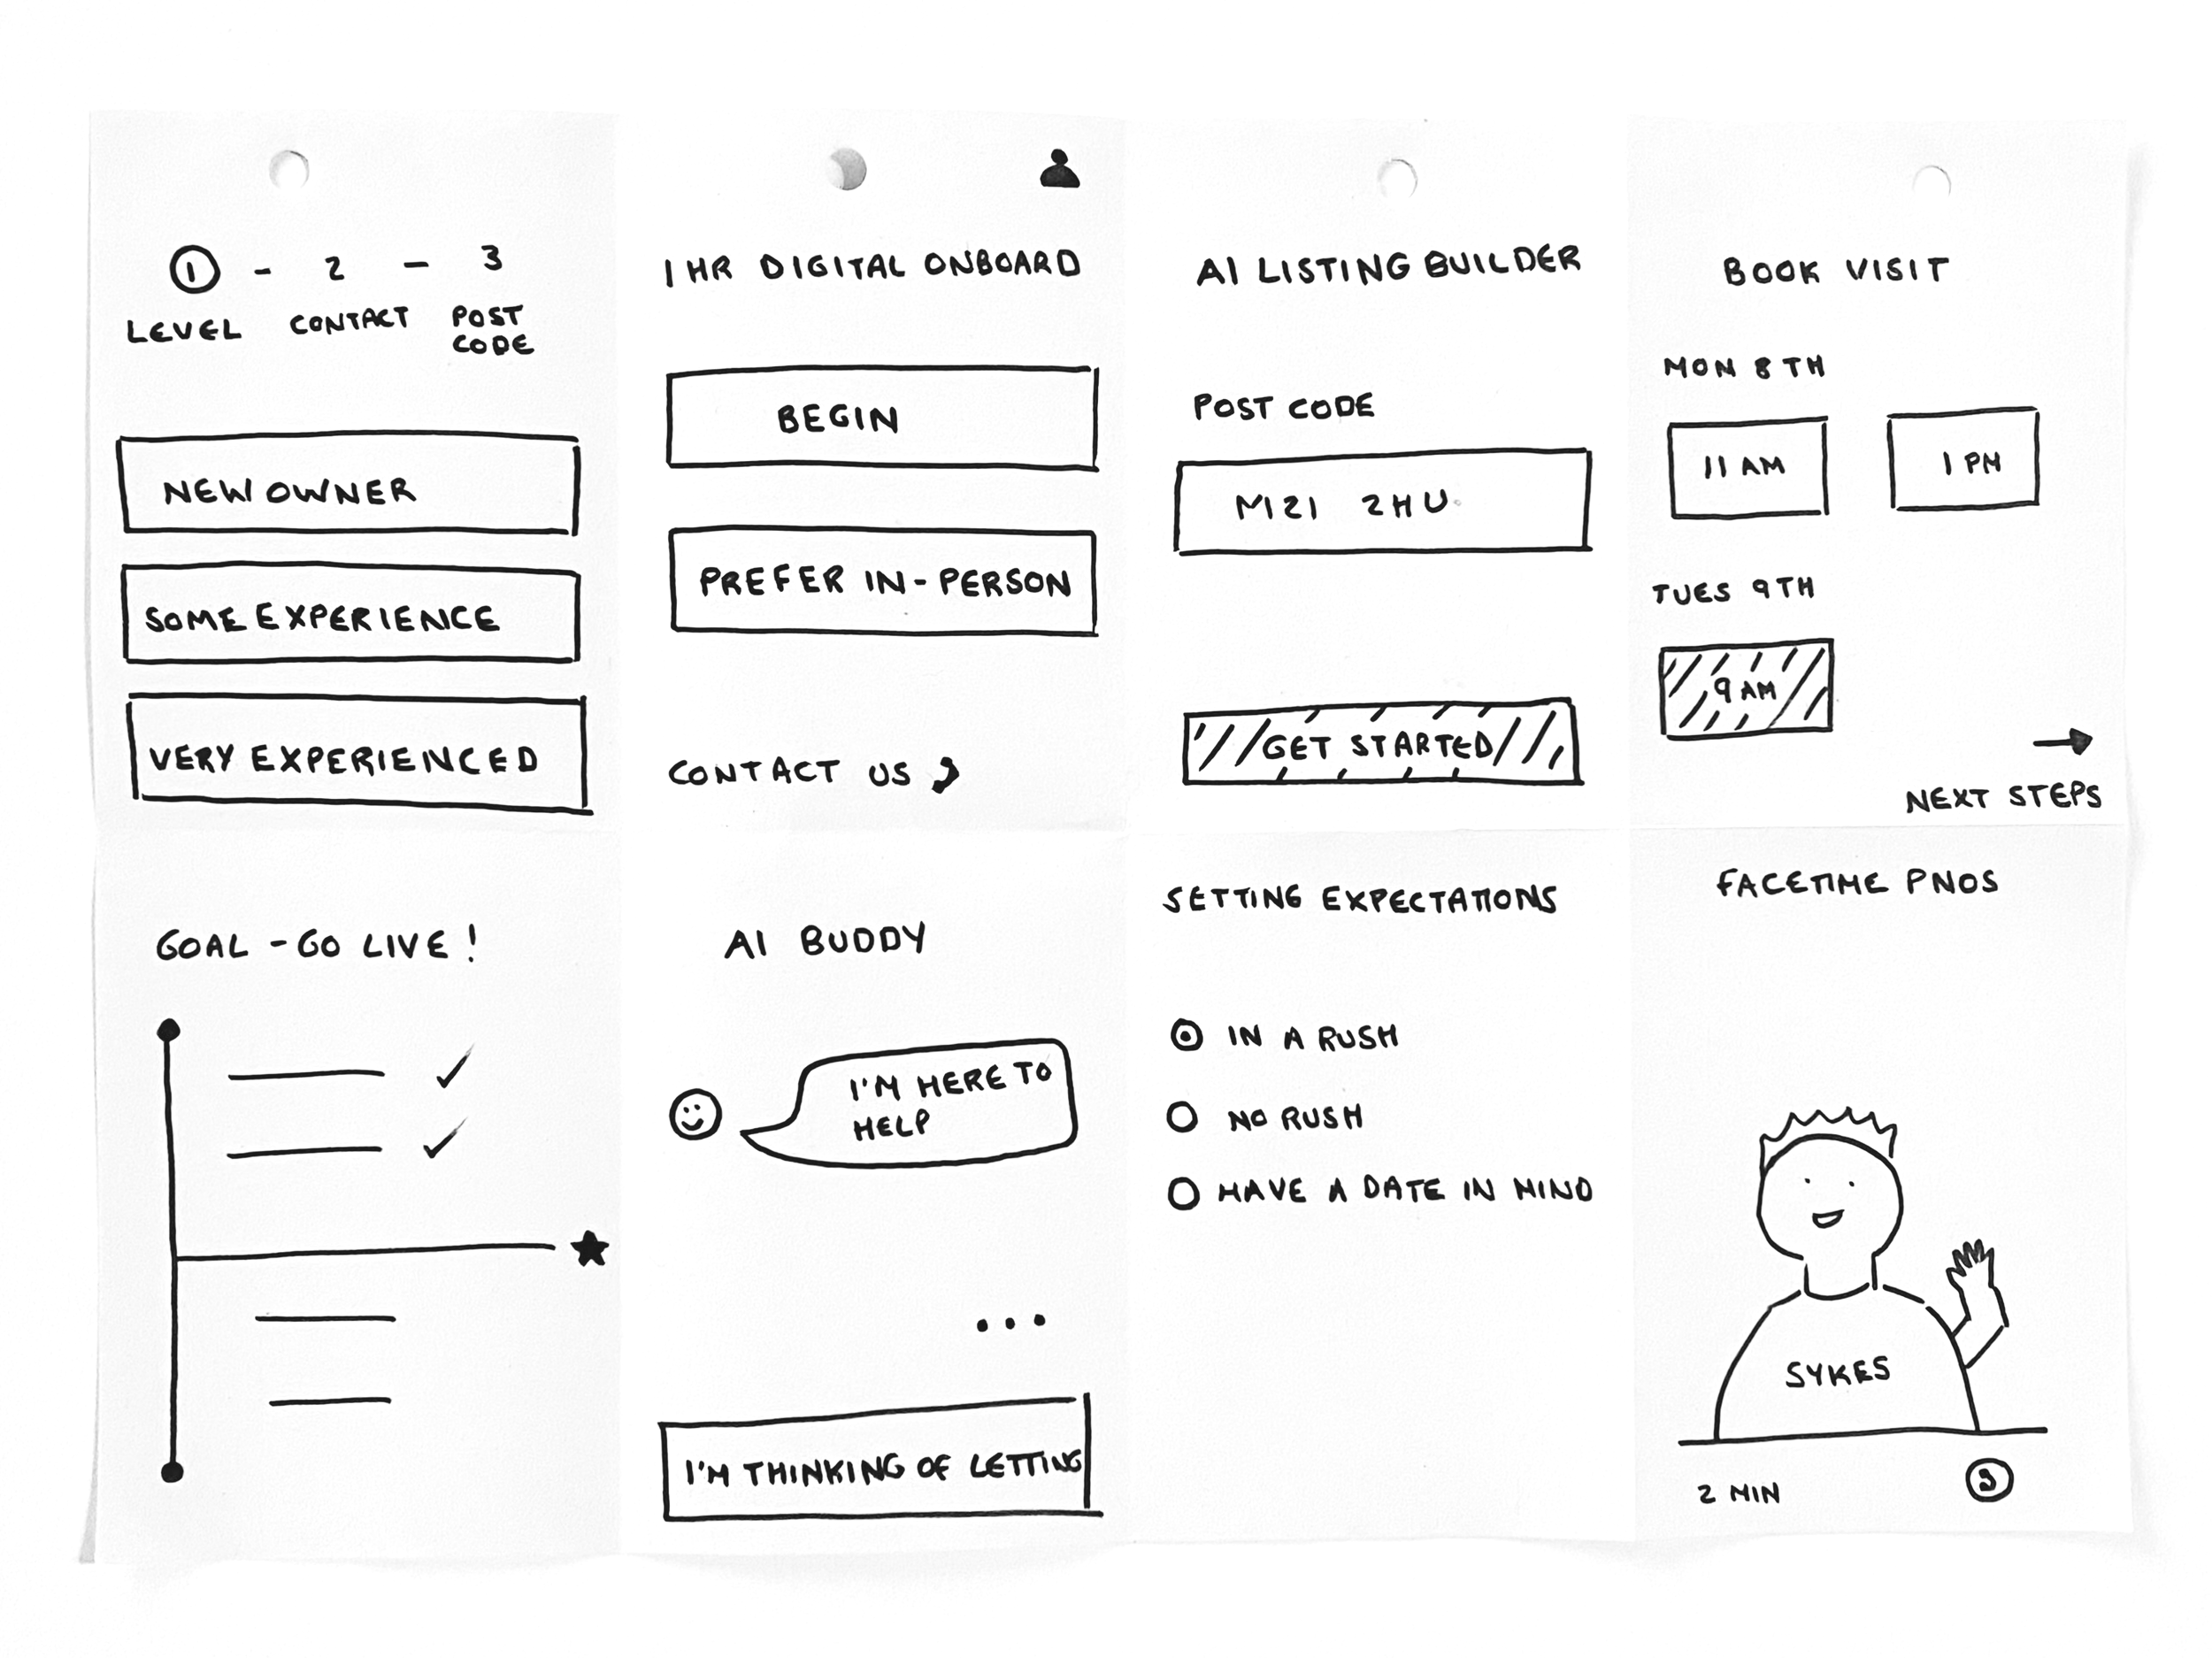 1 - 2 - 3
LEVEL CONTACT POST
CODE
NEW OWNER
SOME EXPERIENCE
VERY EXPERIENCED
1 HR DIGITAL ONBOARD
BEGIN
PREFER IN-PERSON
CONTACT US
AI LISTING BUILDER
POST CODE
M21 2HU
GET STARTED
BOOK VISIT
MON 8TH
11 AM 1 PM
TUES 9TH
9 AM
NEXT STEPS
GOAL - GO LIVE!
AI BUDDY
I'M HERE TO
HELP
...
I'M THINKING OF LETTING
SETTING EXPECTATIONS
IN A RUSH
NO RUSH
HAVE A DATE IN MIND
FACETIME PNOS
SYKES
2 MIN